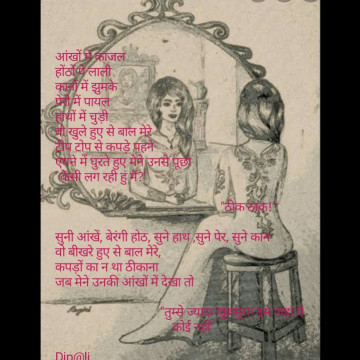 आंखों में काजल
होंठों पे लाली
कानों में झुमके
पैरों में पायल
हाथों में चुड़ी
वो खुले हुए से बाल मेरे
टीप टोप से कपड़े पहने
एैने में घुरते हुए मेने उनसे पूछा
कैसी लग रही हुं में?
"ठीक ठाक! "
सुनी आंखें, बेरंगी होठ, सुने हाथ ,सुने पेर, सुने कान
वो बीखरे हुए से बाल मेरे,
कपड़ों का न था ठीकाना
जब मेने उनकी आंखों में देखा तो
"तुम्से ज्यादा खुबसूरत इस
कोई नहीं
Dip@li